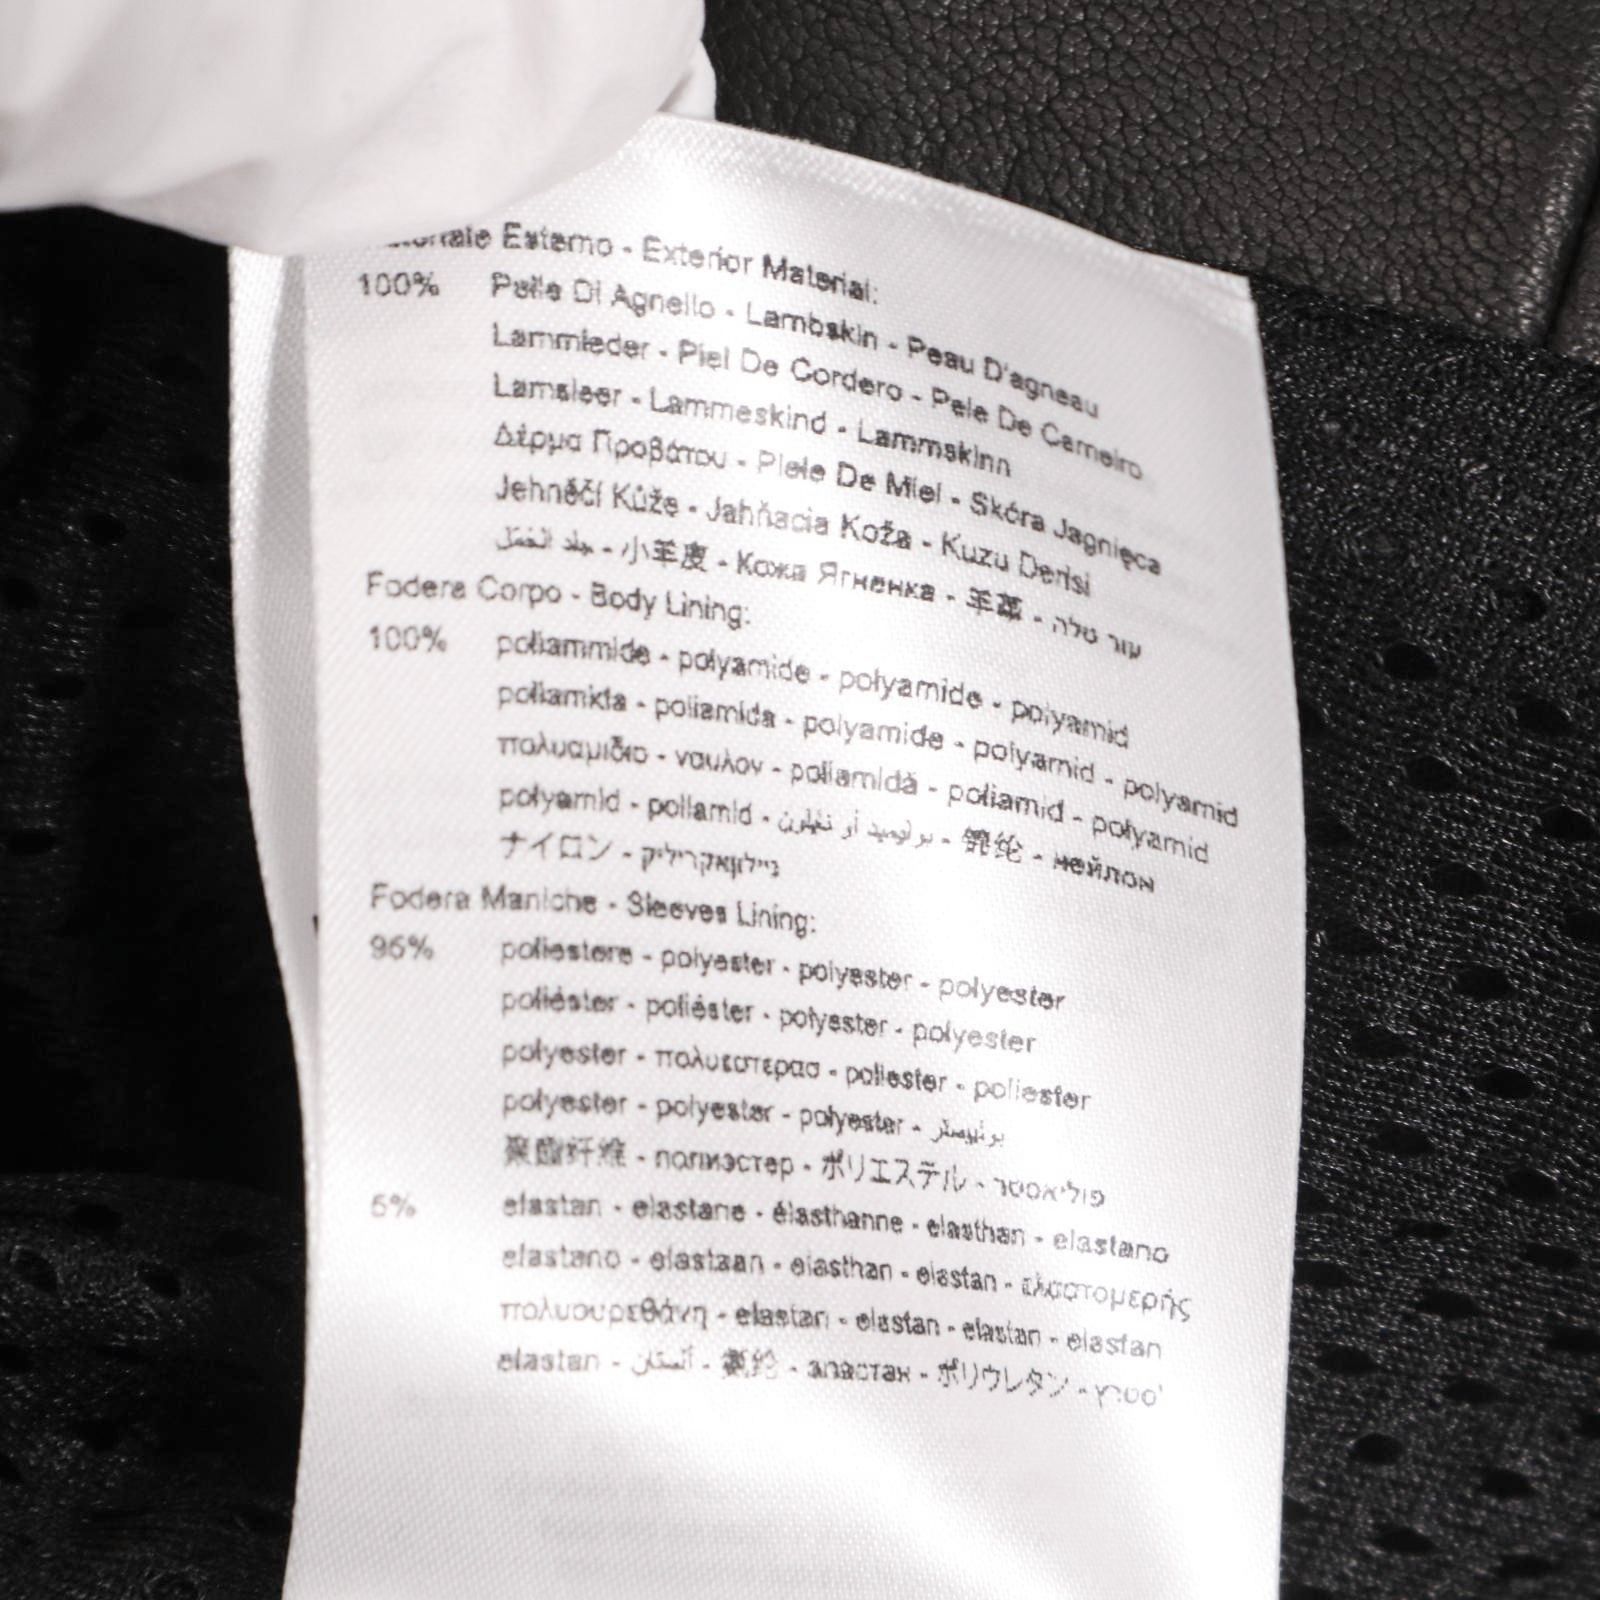 Esterno - Exterior Material:
100% Pelle Di Agnello - Lambskin - Peau D'agneau
Lammleder - Piel De Cordero - Pele De Carneiro
Lamsleer - Lammeskind - Lammskinn
Δέρμα Προβάτου - Piele De Miel - Skóra Jagnięca
Jehněčí Kůže - Jahňacia Koža - Kuzu Derisi
جلد الغنم - 小羊皮 - Кожа Ягненка - 羊革 - עור טלה
Fodera Corpo - Body Lining:
100% poliammide - polyamide - polyamide - polyamid
poliamida - poliamida - polyamide - polyamid - polyamid
πολυαμιδιο - ναυλον - poliamidă - poliamid - polyamid
polyamid - poliamid - بوليميد أو نايلون - 锦纶 - нейлон
ナイロン - ניילוןאקריליק
Fodera Maniche - Sleeves Lining:
95% poliestere - polyester - polyester - polyester
poliéster - poliéster - polyester - polyester
polyester - πολυεστερασ - poliester - poliester
polyester - polyester - polyester - بوليستر
聚酯纤维 - полиэстер - ポリエステル - פוליאסטר
5% elastan - elastane - élasthanne - elasthan - elastano
elastano - elastaan - elasthan - elastan - ελαστομερής
πολυουρεθάνη - elastan - elastan - elastan - elastan
elastan - ألستان - 氨纶 - эластан - ポリウレタン